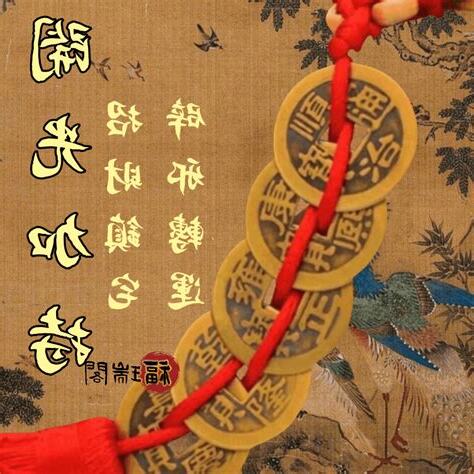 開光加持
招財鎮宅
辟邪轉運
福瑞閣
順治通寶
康熙通寶
雍正通寶
乾隆通寶